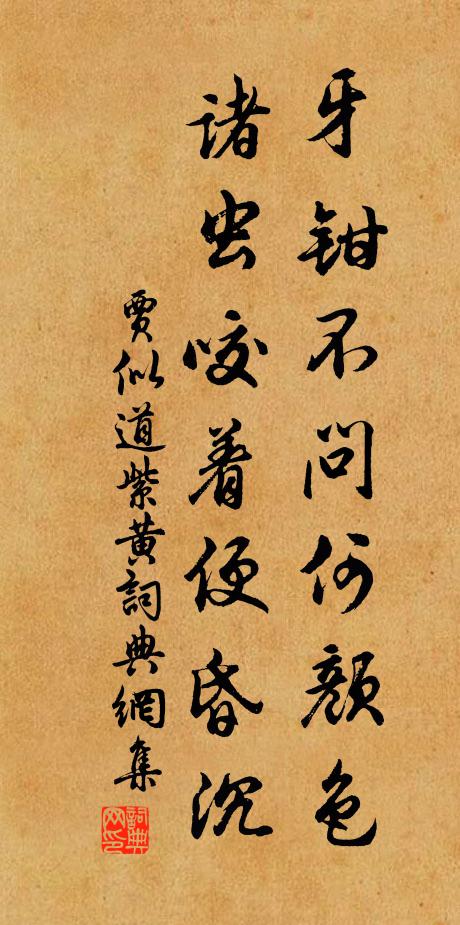 牙钳不問何顏色
诸虫咬着便昏沉
賈似道紫黄詞典網集
詞典网印